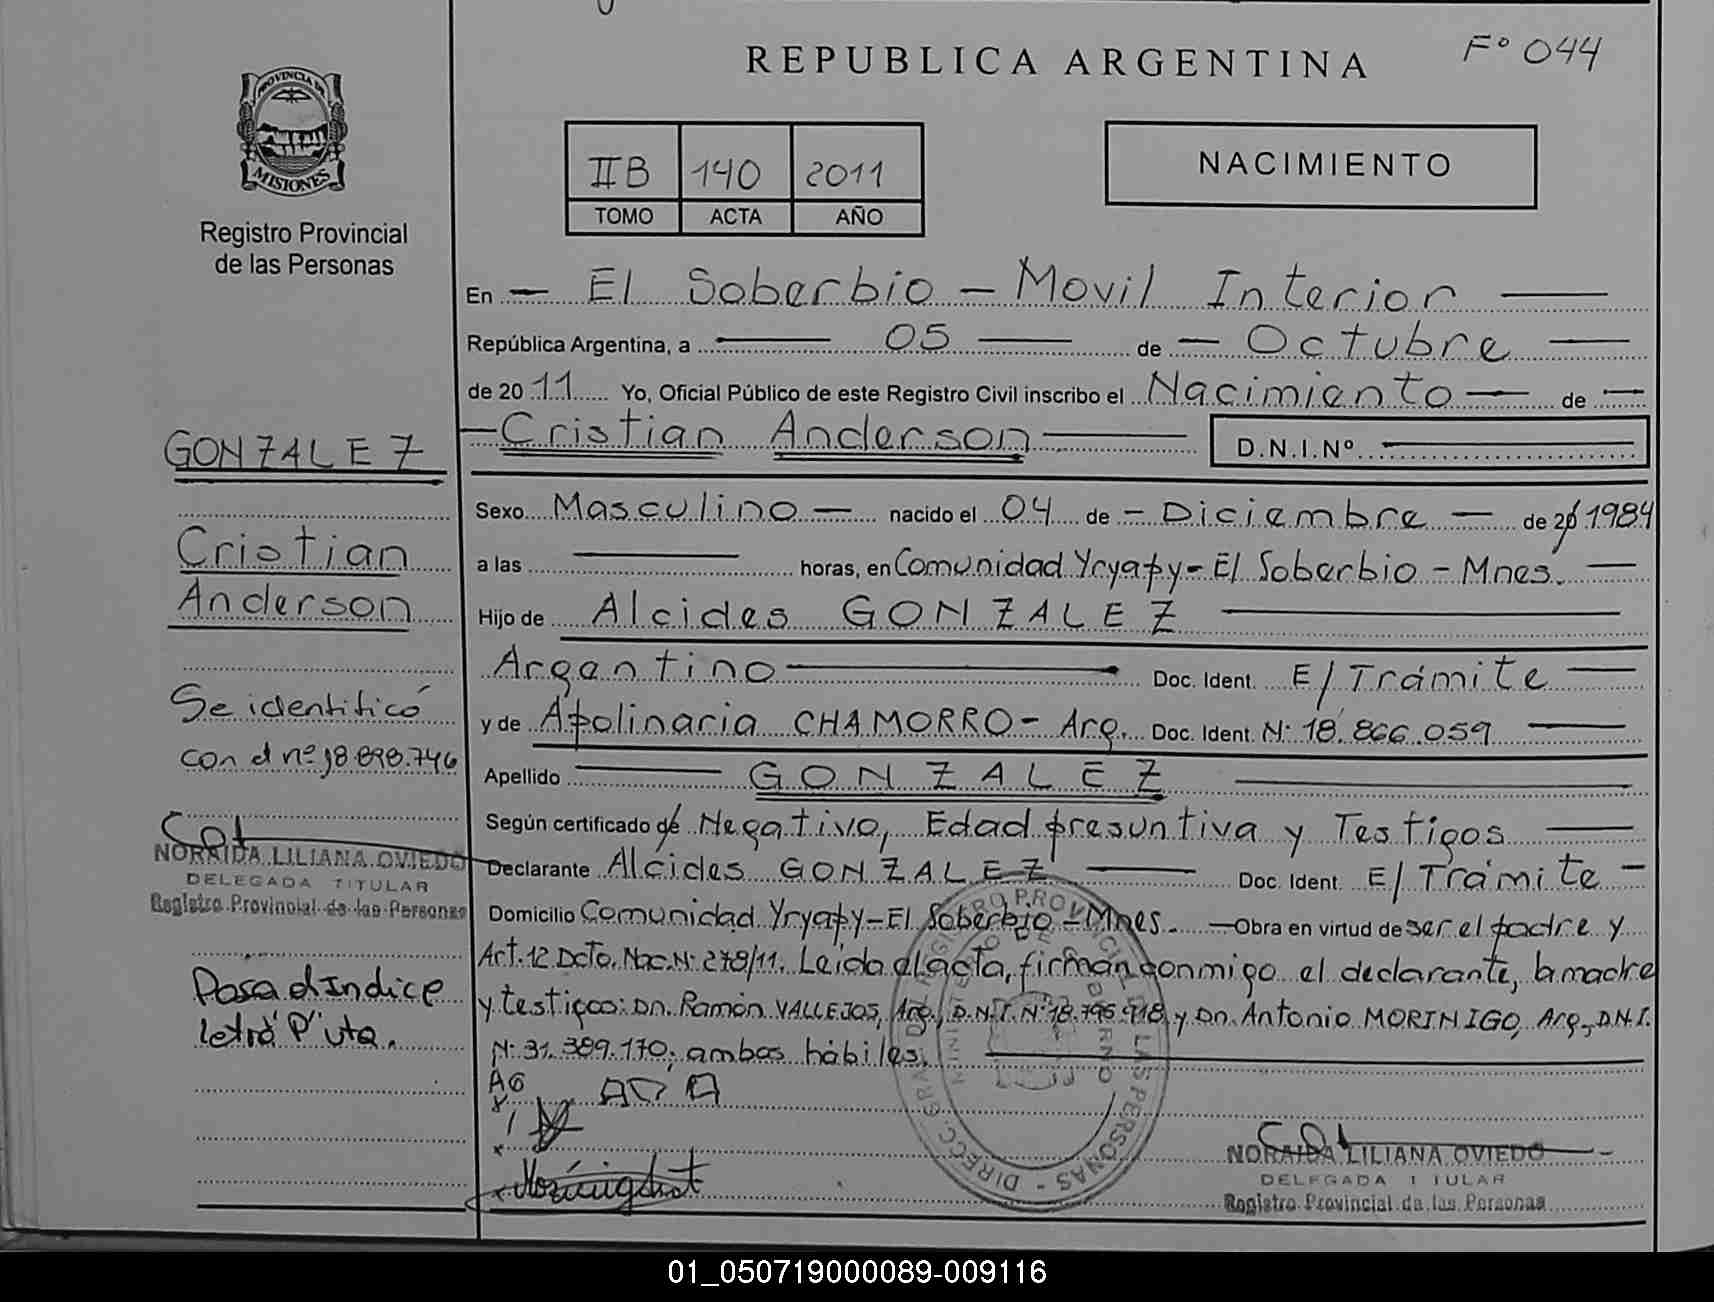 REPUBLICA ARGENTINA
Fº 044
PROVINCIA DE
MISIONES
Registro Provincial
de las Personas
IIB 140 2011
TOMO ACTA AÑO
NACIMIENTO
En El Soberbio - Movil Interior
República Argentina, a 05 de Octubre
de 2011 Yo, Oficial Público de este Registro Civil inscribo el Nacimiento de
Cristian Anderson D.N.I.Nº
Sexo Masculino nacido el 04 de Diciembre de 20 1984
a las horas, en Comunidad Yryapy - El Soberbio - Mnes.
Hijo de Alcides GONZALEZ
Argentino Doc. Ident. E/Trámite
y de Apolinaria CHAMORRO - Arg. Doc. Ident. Nº 18.866.059
Apellido GONZALEZ
Según certificado de Negativo, Edad presuntiva y Testigos
Declarante Alcides GONZALEZ Doc. Ident. E/Trámite
Domicilio Comunidad Yryapy - El Soberbio - Mnes. Obra en virtud de ser el padre y
Art. 12 Dcto. Nac. Nº 278/11. Leída el acta, firman conmigo el declarante, la madre
y testigos: Dn. Ramón VALLEJOS, Arg., D.N.I. Nº 18.795.918 y Dn. Antonio MORINIGO, Arg., D.N.I.
Nº 31.389.170, ambos hábiles.
GONZALEZ
Cristian
Anderson
Se identificó
con d nº 18.898.746
NORAIDA LILIANA OVIEDO
DELEGADA TITULAR
Registro Provincial de las Personas
Pasa al Indice
letra "P" Vta.
NORAIDA LILIANA OVIEDO
DELEGADA TITULAR
Registro Provincial de las Personas
01_050719000089-009116